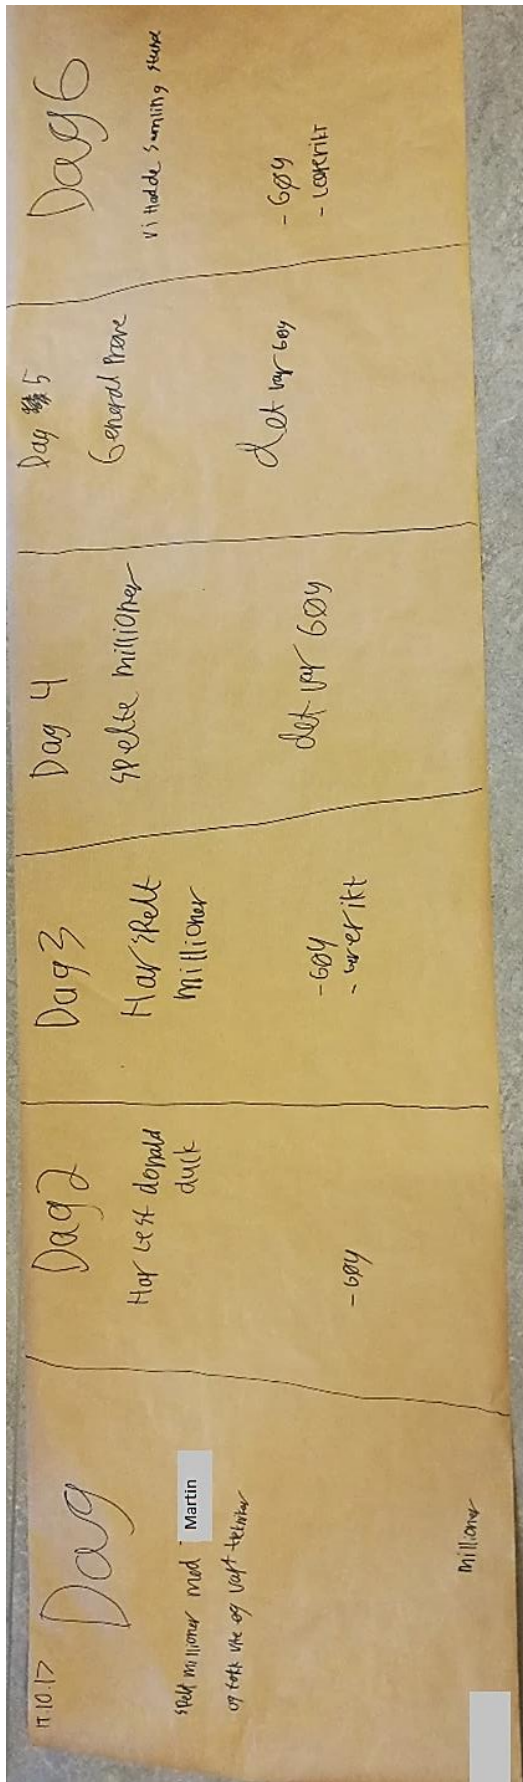 17.10.17
Dag
spelt millioner med Martin
og tatt vre og vært tekniker
millioner
Dag 2
Har lest donald
duck
-Gøy
Dag 3
Har spelt
millioner
-Gøy
Dag 4
spelte millioner
det var Gøy
Dag 5
General Prøve
det var Gøy
Dag 6
vi Hadde Samling stund
-Gøy